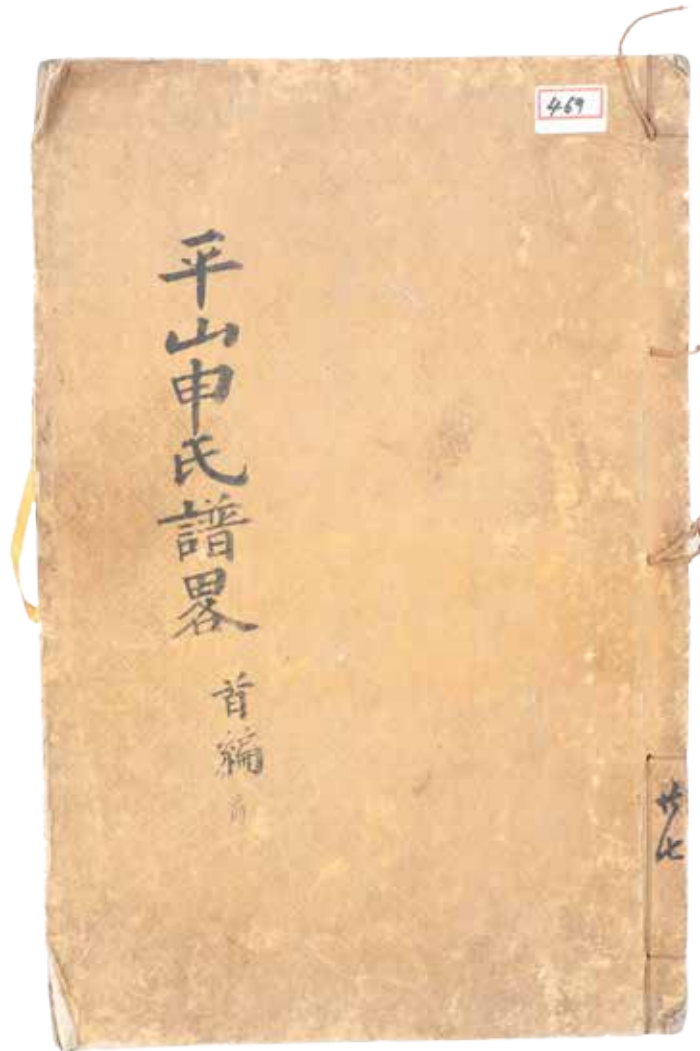 469
平山申氏譜畧
首編
共七